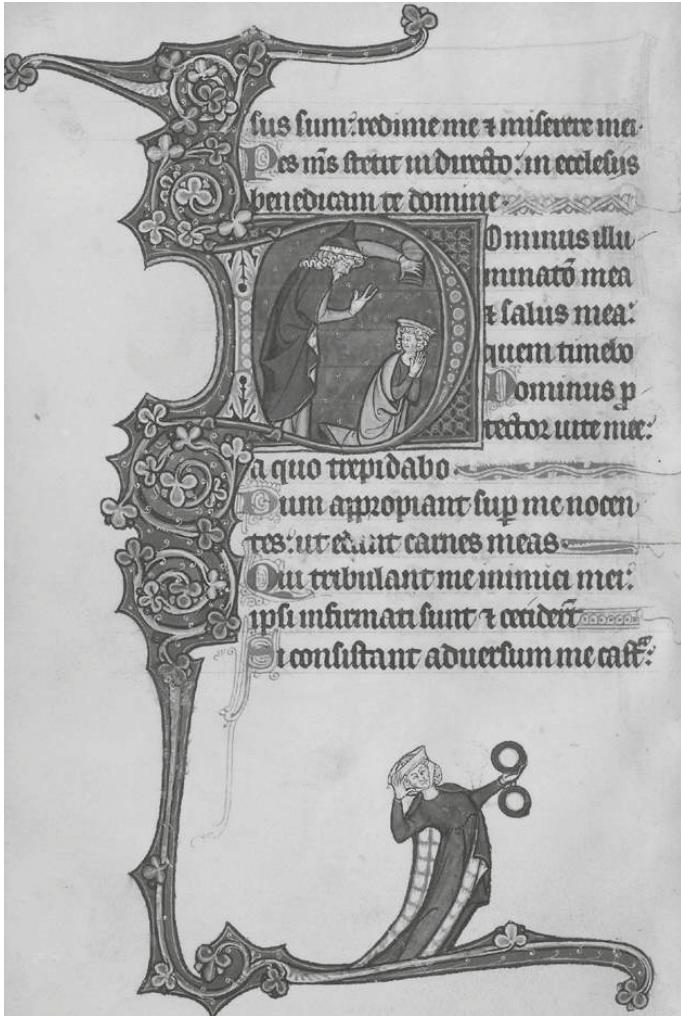 sus sum: redime me ⁊ miserere mei.
Pes m̅s stetit in directo: in ecclesiis
benedicam te domine.
Dominus illu
minatō mea
⁊ salus mea:
quem timebo
Dominus ꝓ
tector uite mee:
a quo trepidabo.
Dum appropiant suꝑ me nocen
tes: ut edant carnes meas.
Qui tribulant me inimici mei:
ipsi infirmati sunt ⁊ cecider̅t
Si consistant aduersum me castͬa: